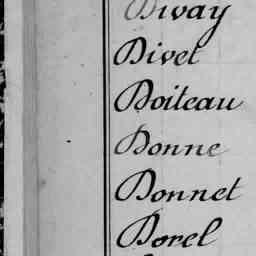 Divay
Divet
Doiteau
Donne
Donnet
Dorel